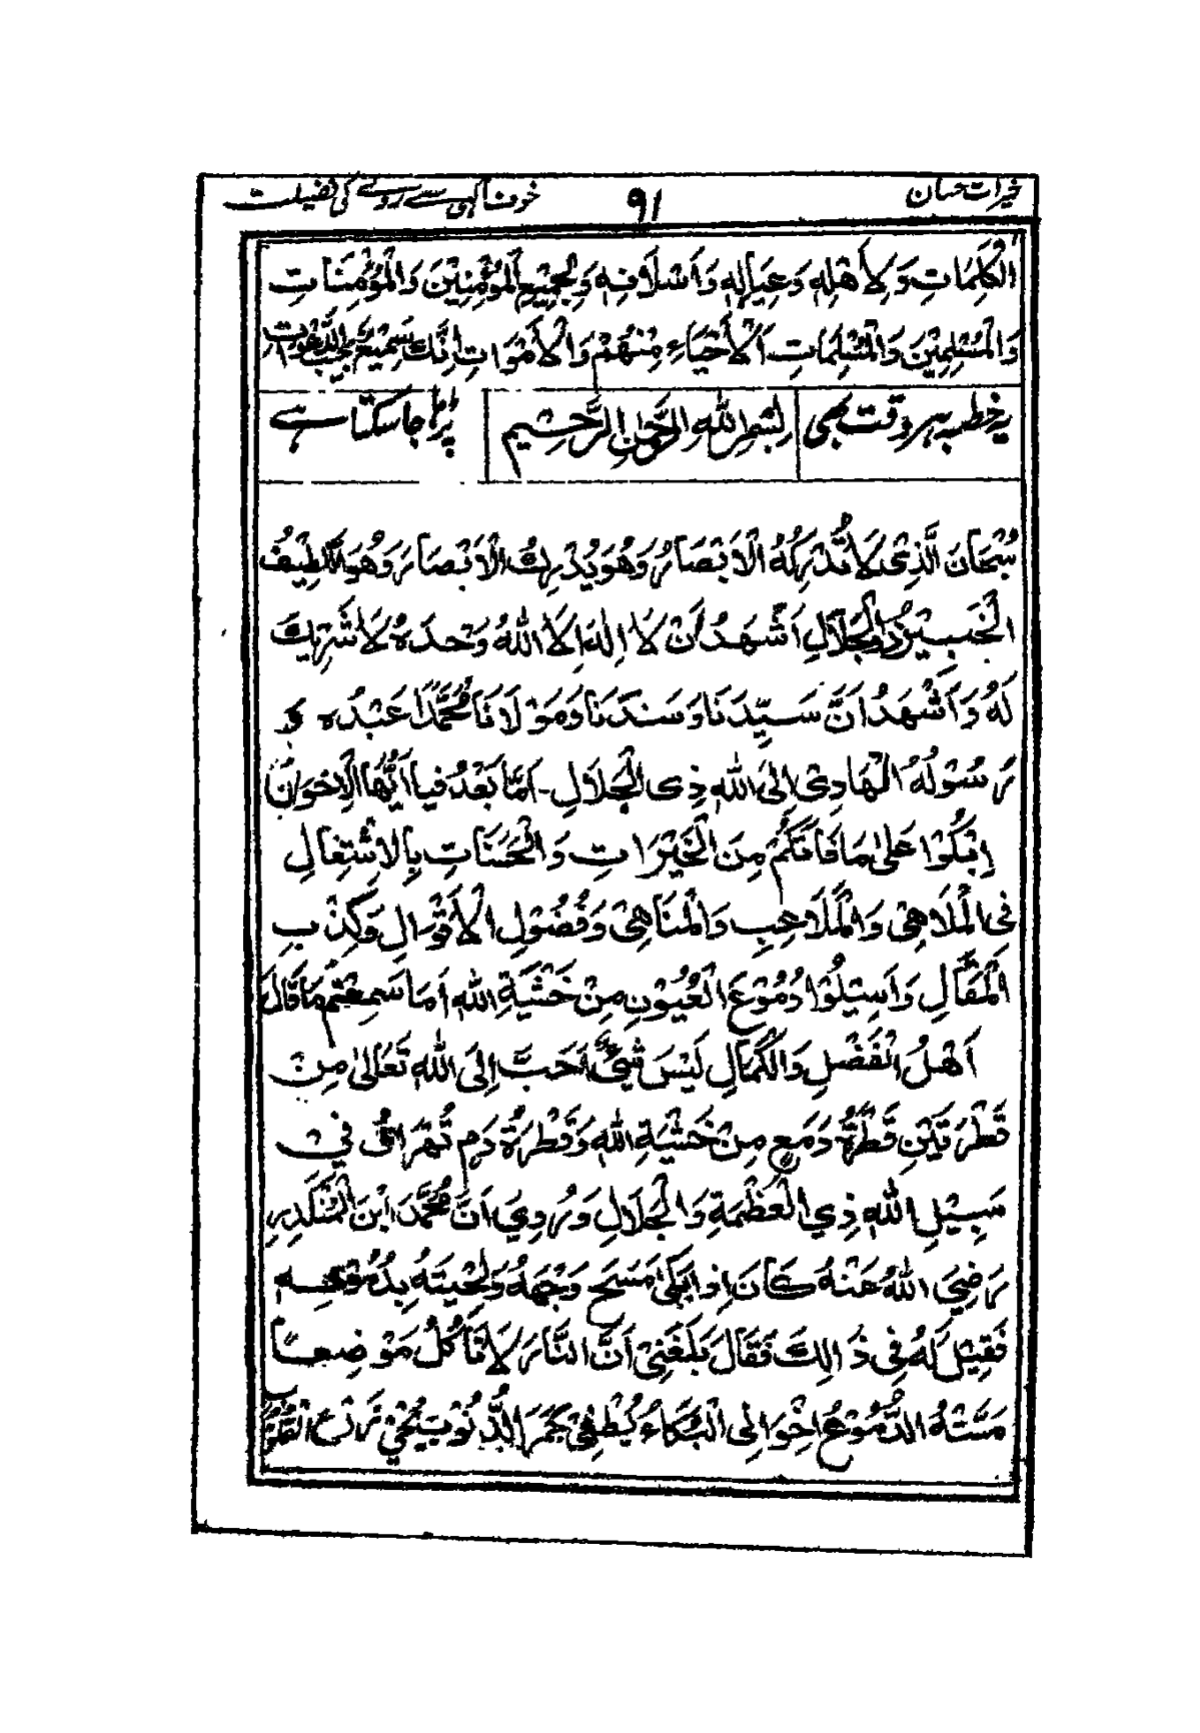 خیرات حسان ۹۱ خوف الٰہی سے رونے کی فضیلت
الْكَلِمَاتِ وَلِاَهْلِهٖ وَعِيَالِهٖ وَاَسْلَافِهٖ وَلِجَمِيْعِ الْمُؤْمِنِيْنَ وَالْمُؤْمِنَاتِ
وَالْمُسْلِمِيْنَ وَالْمُسْلِمَاتِ اَلْاَحْيَاءِ مِنْهُمْ وَالْاَمْوَاتِ اِنَّكَ سَمِيْعٌ مُّجِيْبُ الدَّعْوَاتِ
یہ خطبہ ہر وقت بھی بِسْمِ اللّٰهِ الرَّحْمٰنِ الرَّحِيْمِ پڑھا جا سکتا ہے
سُبْحَانَ الَّذِىْ لَا تُدْرِكُهُ الْاَبْصَارُ وَهُوَ يُدْرِكُ الْاَبْصَارَ وَهُوَ اللَّطِيْفُ
الْخَبِيْرُ ذُو الْجَلَالِ اَشْهَدُ اَنْ لَا اِلٰهَ اِلَّا اللّٰهُ وَحْدَهُ لَا شَرِيْكَ
لَهُ وَاَشْهَدُ اَنَّ سَيِّدَنَا وَسَنَدَنَا وَمَوْلَانَا مُحَمَّدًا عَبْدُهٗ وَ
رَسُوْلُهُ الْهَادِىْ اِلَى اللّٰهِ ذِى الْجَلَالِ۔ اَمَّا بَعْدُ فَيَا اَيُّهَا الْاِخْوَانُ
اِبْكُوْا عَلٰى مَا فَاتَكُمْ مِنَ الْخَيْرَاتِ وَالْحَسَنَاتِ بِالْاِشْتِغَالِ
فِى الْمَلَاهِىْ وَالْمَلَاعِبِ وَالْمَنَاهِىْ وَفُضُوْلِ الْاَقْوَالِ وَكِذْبِ
الْمَقَالِ وَاَسِيْلُوْا دُمُوْعَ الْعُيُوْنِ مِنْ خَشْيَةِ اللّٰهِ اَمَا سَمِعْتُمْ مَا قَالَ
اَهْلُ الْفَضْلِ وَالْكَمَالِ لَيْسَ شَىْءٌ اَحَبَّ اِلَى اللّٰهِ تَعَالٰى مِنْ
قَطْرَتَيْنِ قَطْرَةُ دَمَعٍ مِنْ خَشْيَةِ اللّٰهِ وَقَطْرَةُ دَمٍ تُهَرَاقُ فِيْ
سَبِيْلِ اللّٰهِ ذِي الْعَظْمَةِ وَالْجَلَالِ وَرُوِيَ اَنَّ مُحَمَّدَ ابْنَ الْمُنْكَدِرِ
رَضِيَ اللّٰهُ عَنْهُ كَانَ اِذَا بَكٰى مَسَحَ وَجْهَهُ وَلِحْيَتَهُ بِدُمُوْعِهٖ
فَقِيْلَ لَهُ فِى ذَالِكَ فَقَالَ بَلَغَنِىْ اَنَّ النَّارَ لَا تَأْكُلُ مَوْضِعًا
مَسَّتْهُ الدُّمُوْعُ اِخْوَانِى الْبُكَاءُ يُطْفِئُ جَمْرَ الذُّنُوْبِ يُحْيِيْ زَرْعَ الْقُلُوْبِ